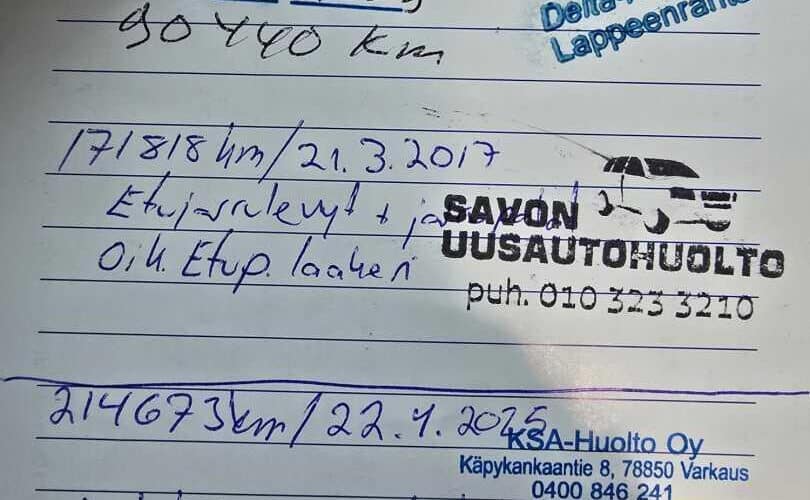 Lappeenranta
90440 km
171818 km / 21.3.2017
Etujarrulevyt +
Oik. Etup. laakeri
SAVON
UUSAUTOHUOLTO
puh. 010 323 3210
214673 km / 22.4.2025
KSA-Huolto Oy
Käpykankaantie 8, 78850 Varkaus
0400 846 241